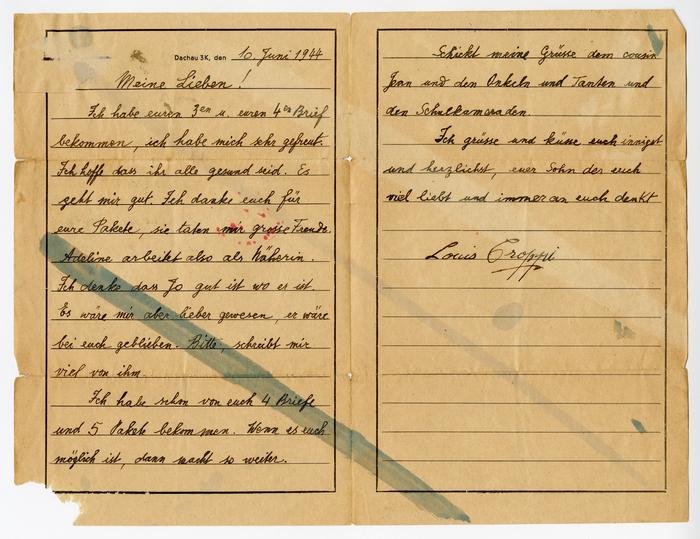 Dachau 3K, den 10. Juni 1944
Meine Lieben!
Ich habe euren 3en u. euren 4en Brief
bekommen, ich habe mich sehr gefreut.
Ich hoffe dass ihr alle gesund seid. Es
geht mir gut. Ich danke euch für
eure Pakete, sie taten mir grosse Freude.
Adeline arbeitet also als Näherin.
Ich denke dass Jo gut ist wo er ist.
Es wäre mir aber lieber gewesen, er wäre
bei euch geblieben. Bitte, schreibt mir
viel von ihm.
Ich habe schon von euch 4 Briefe
und 5 Pakete bekommen. Wenn es euch
möglich ist, dann macht so weiter.
Schickt meine Grüsse dem cousin
Jean und den Onkeln und Tanten und
den Schulkameraden.
Ich grüsse und küsse euch innigst
und herzlichst, euer Sohn der euch
viel liebt und immer an euch denkt
Louis Croppi